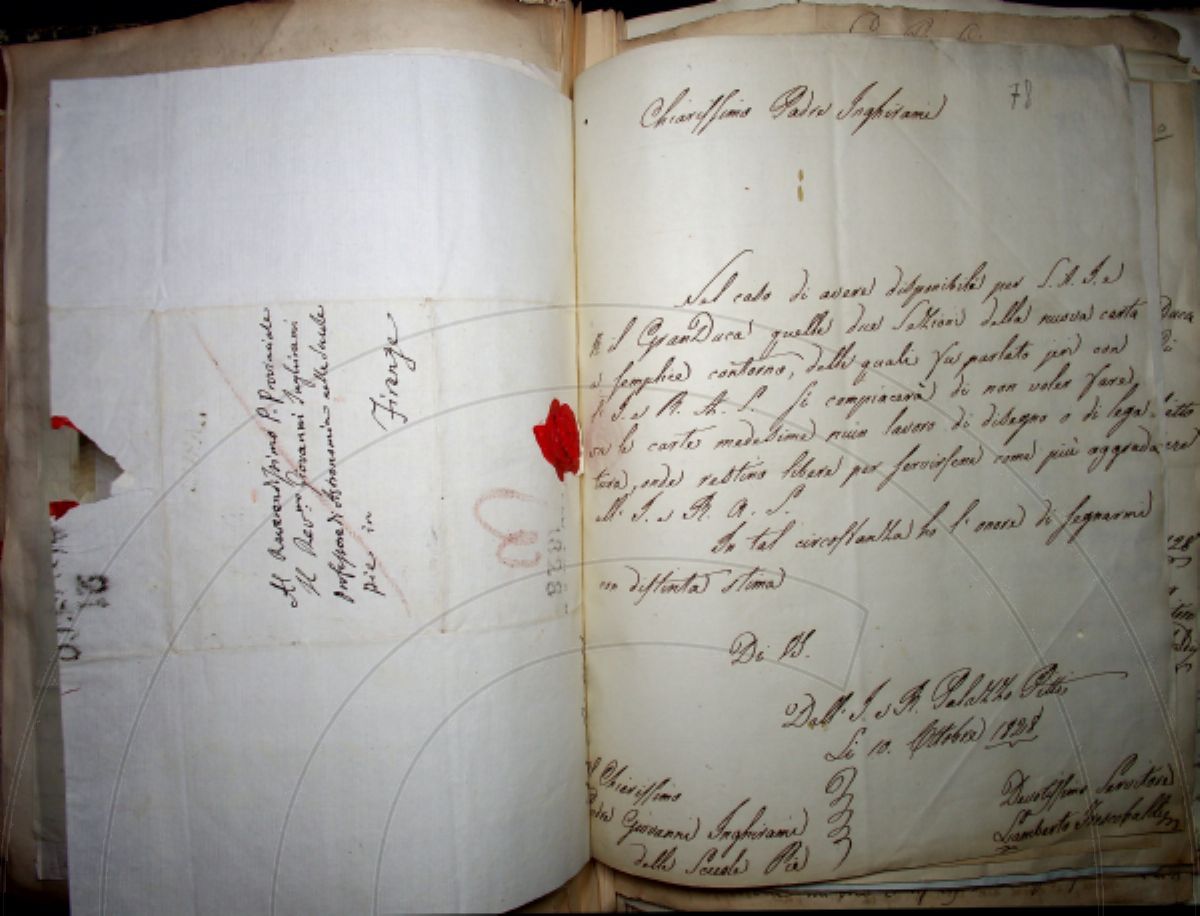 Al Reverendissimo P. Provinciale
Il Rev:mo Giovanni Inghirami
Professore di Astronomia nelle Scuole
Pie in
Firenze
78
Chiarissimo Padre Inghirami
Nel caso di avere disponibili per S. A. I. e
R il GranDuca quelle due Sezioni della nuova carta
a semplice contorno, delle quali fu parlato jeri con
S. I. e R. A. S. si compiacerà di non voler fare
su le carte medesime niun lavoro di disegno o di lega-
tura, onde restino libere per servirsene come più aggrada
all' I. e R. A. S.
In tal circostanza ho l' onore di segnarmi
con distinta stima
Di V. S.
Dall' I. e R. Palazzo Pitti
Li 10. Ottobre 1828
Al Chiarissimo
Padre Giovanni Inghirami
delle Scuole Pie
Devotissimo Servitore
Lamberto Frescobaldi